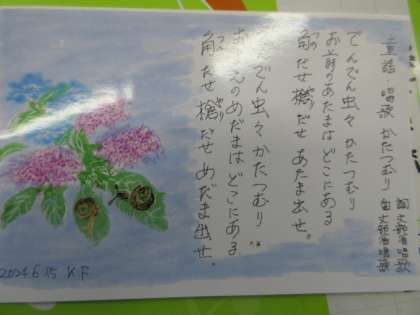 童謡・唱歌 かたつむり
詞 文部省唱歌
曲 文部省唱歌
でんでん虫々 かたつむり
お前のあたまは どこにある
角だせ 槍だせ あたま出せ。
でん虫々 かたつむり
のめだまは どこにある
角だせ 槍だせ めだま出せ。
2024.6.15 K.F